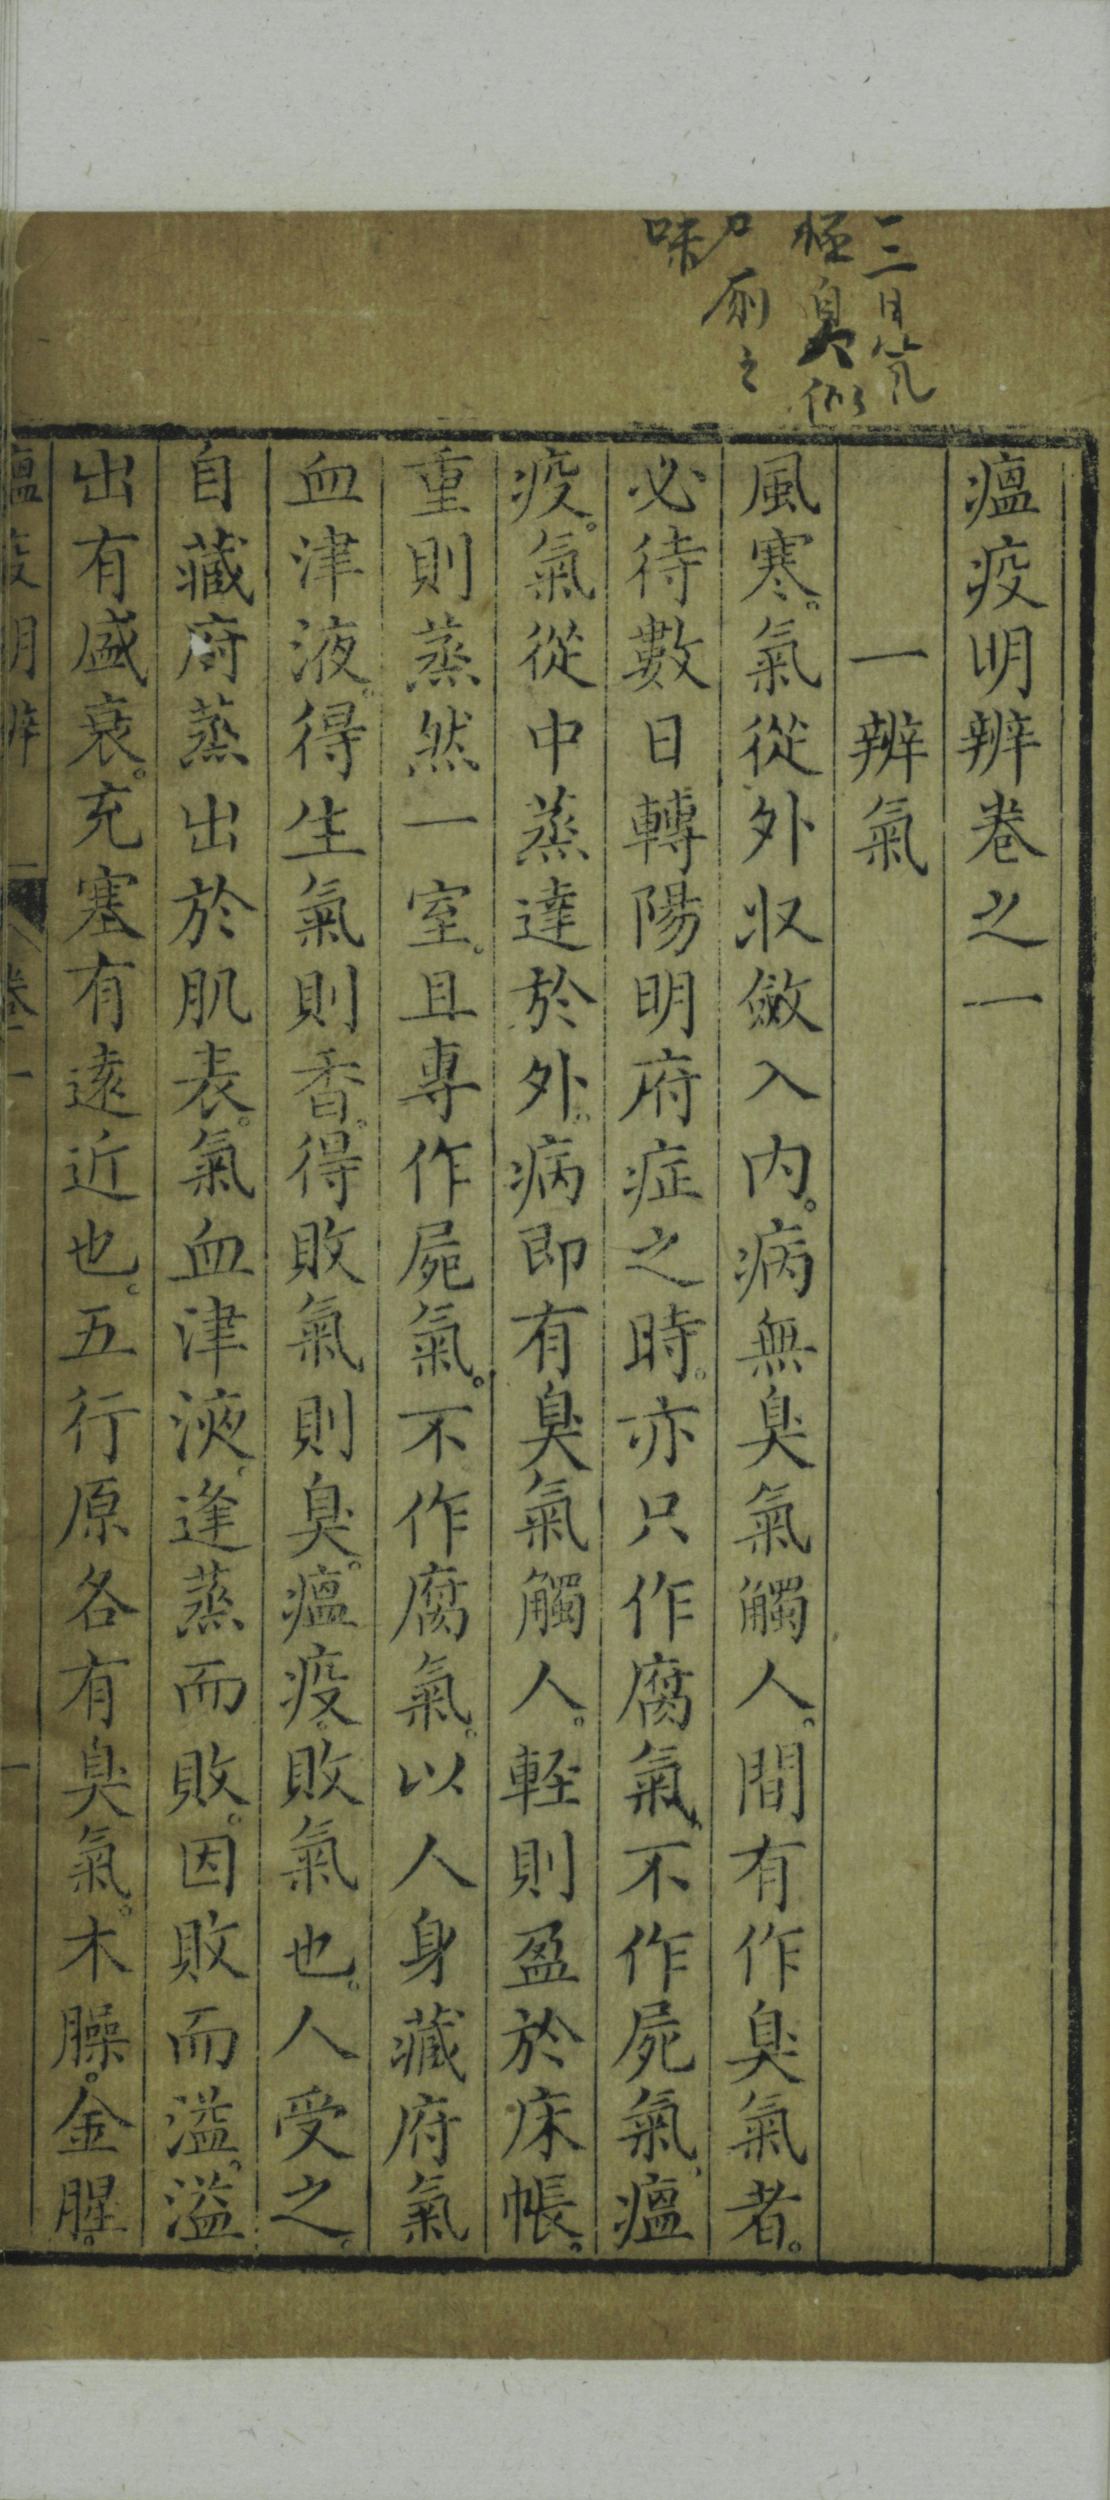 一三日氣
極臭似
刀廁之
味
瘟疫明辨卷之一
一辨氣
風寒。氣從外収斂入內。病無臭氣觸人。間有作臭氣者。
必待數日轉陽明府症之時。亦只作腐氣、不作屍氣、瘟
疫。氣從中蒸達於外。病即有臭氣觸人。軽則盈於床帳。
重則蒸然一室。且專作屍氣。不作腐氣。以人身藏府氣
血津液。得生氣則香。得敗氣則臭。瘟疫。敗氣也。人受之。
自藏府蒸出於肌表。氣血津液、逢蒸而敗。因敗而溢。溢
出有盛衰。充塞有遠近也。五行原各有臭氣。木臊。金腥。
瘟疫明辨
卷一
一